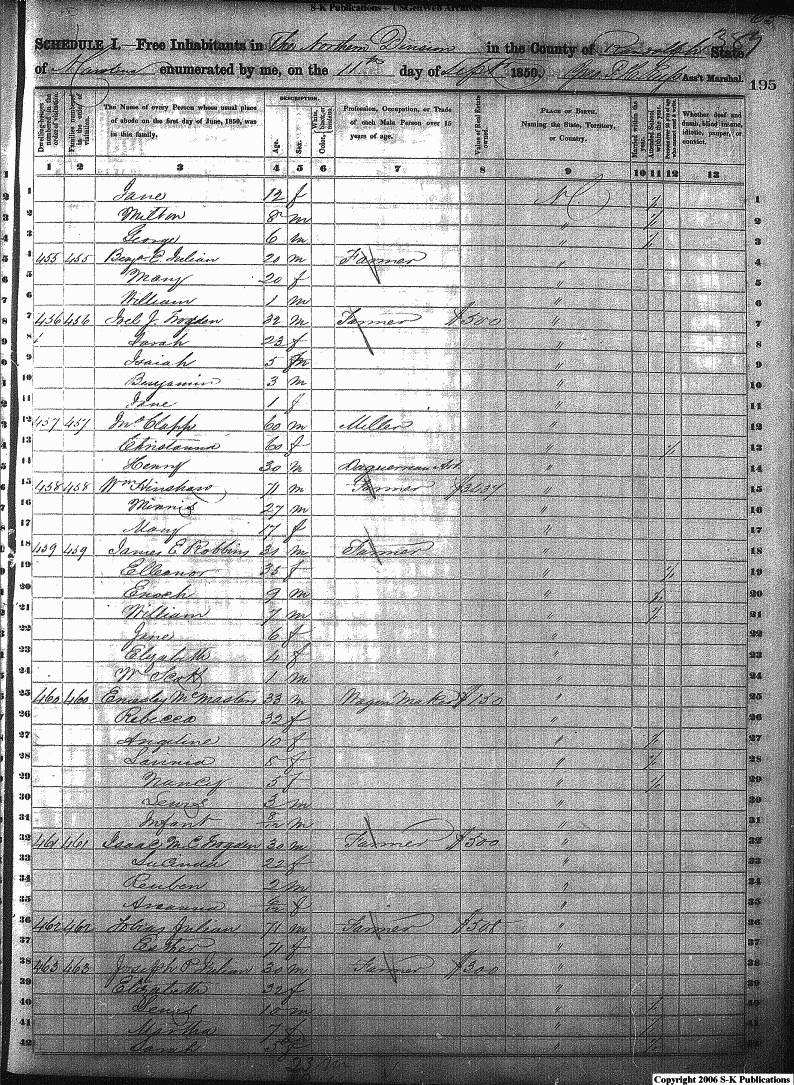 S-K Publications - USGenWeb Archives
389
SCHEDULE I.—Free Inhabitants in The Northern Division in the County of Randolph State
of N Carolina enumerated by me, on the 11th day of Sept 1850. Ass't Marshal.
195
DESCRIPTION.
Dwelling-houses numbered in the order of visitation.
Families numbered in the order of visitation.
The Name of every Person whose usual place of abode on the first day of June, 1850, was in this family.
Age.
Sex.
White, black, or mulatto.
Color,
Profession, Occupation, or Trade of each Male Person over 15 years of age.
Value of Real Estate owned.
PLACE OF BIRTH.
Naming the State, Territory, or Country.
Married within the year.
Attended School within the year.
Whether deaf and dumb, blind, insane, idiotic, pauper, or convict.
1 2 3 4 5 6 7 8 9 10 11 12 13
1 Jane 12 f N C / 1
2 Milton 8 m " / 2
3 George 6 m " / 3
4 455 455 Benjn C. Julian 20 m Farmer " 4
5 Mary 20 f " 5
6 William 1 m " 6
7 456 456 Joel J. Trogden 32 m Farmer $500 " 7
8 Sarah 23 f " 8
9 Isaiah 5 m " 9
10 Benjamin 3 m " 10
11 Jane 1 f " 11
12 457 457 Jno Clapp 60 m Miller " 12
13 60 f " / 13
14 Henry 30 m " 14
15 458 458 Wm Hinshaw 71 m Farmer " 15
16 27 m " 16
17 Mary 17 f " 17
18 459 459 James E Robbins 30 m Farmer " 18
19 Elleanor 35 f " / 19
20 Enoch 9 m " / 20
21 William 7 m " / 21
22 Jane 6 f " 22
23 Elizabeth 4 f " 23
24 Wm Scott 1 m " 24
25 460 460 Emsley McMasters 33 m Wagon Maker $150 " 25
26 Rebecca 32 f " 26
27 Angeline 10 f " / 27
28 8 f " / 28
29 Nancy 5 f " / 29
30 Lewis 3 m " 30
31 Infant 8/12 m " 31
32 461 461 Isaac M C Trogden 30 m Farmer $300 " 32
33 Lucinda 22 f " 33
34 Reuben 2 m " 34
35 f " 35
36 462 462 Tobias Julian 71 m Farmer $500 " 36
37 Esther 71 f " 37
38 463 463 Joseph P Julian 30 m Farmer $300 " 38
39 Elizabeth 32 f " 39
40 Lewis 10 m " / 40
41 Martha 7 f " / 41
42 Sarah 5 f " / 42
23 m
Copyright 2006 S-K Publications